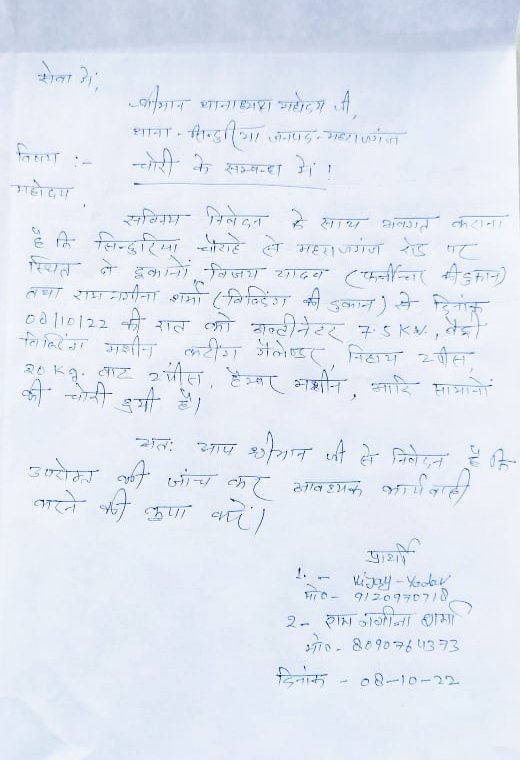 सेवा में,
श्रीमान थानाध्यक्ष महोदय जी,
थाना - सिन्दुरिया जनपद - महराजगंज
विषय :- चोरी के सम्बन्ध में !
महोदय,
सविनय निवेदन के साथ अवगत कराना
है कि सिन्दुरिया चौराहे से महराजगंज रोड पर
स्थित दो दुकानों विजय यादव (फर्नीचर की दुकान)
तथा राम नगीना शर्मा (विल्डिंग की दुकान) से दिनांक
08/10/22 की रात को अल्टीनेटर 7.5 KV., बैट्री
विल्डिंग मशीन कटींग गैलेण्डर, निहाय 2 पीस,
20 Kg. बाट 2 पीस, हैम्बर मशीन, आदि सामानों
की चोरी हुयी है।
अतः आप श्रीमान जी से निवेदन है कि
उपरोक्त की जांच कर आवश्यक कार्यवाही
करने की कृपा करें।
प्रार्थी
1. - Vijay - Yadav
मो० - 9120970718
2 - राम नगीना शर्मा
मो० - 8090764373
दिनांक - 08-10-22